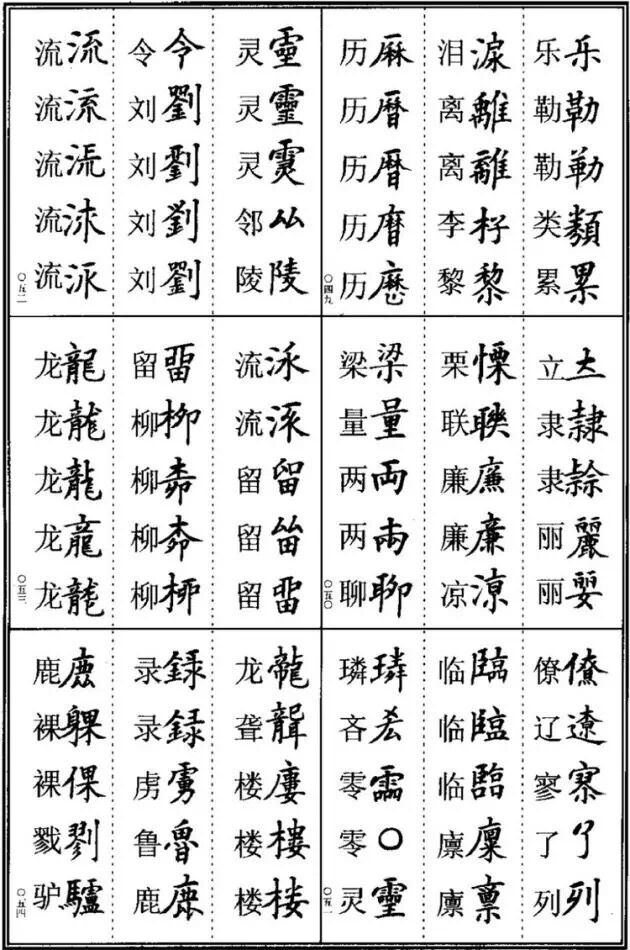 乐乐
勒勒
勒勒
类類
累累
泪淚
离離
离離
李杍
黎黎
历厤
历曆
历曆
历
历歷
〇四九
立
隶隸
隶
丽麗
丽
栗慄
联聯
廉廉
廉廉
凉凉
梁梁
量量
两両
两
聊聊
〇五〇
僚僚
辽遼
寥
了了
列列
临臨
临臨
临臨
廪廩
廪稟
璘璘
吝
零霝
零〇
灵靈
〇五一
灵靈
灵靈
灵
邻厸
陵陵
令令
刘劉
刘劉
刘劉
刘劉
流流
流流
流
流
流
〇五二
流
流
留留
留
留畱
留畱
柳柳
柳
柳
柳
龙龍
龙龍
龙龍
龙龍
龙龍
〇五三
龙龍
聋聾
楼廔
楼楼
楼楼
录録
录録
虏虜
鲁魯
鹿鹿
鹿鹿
裸躶
裸倮
戮剹
驴驢
〇五四